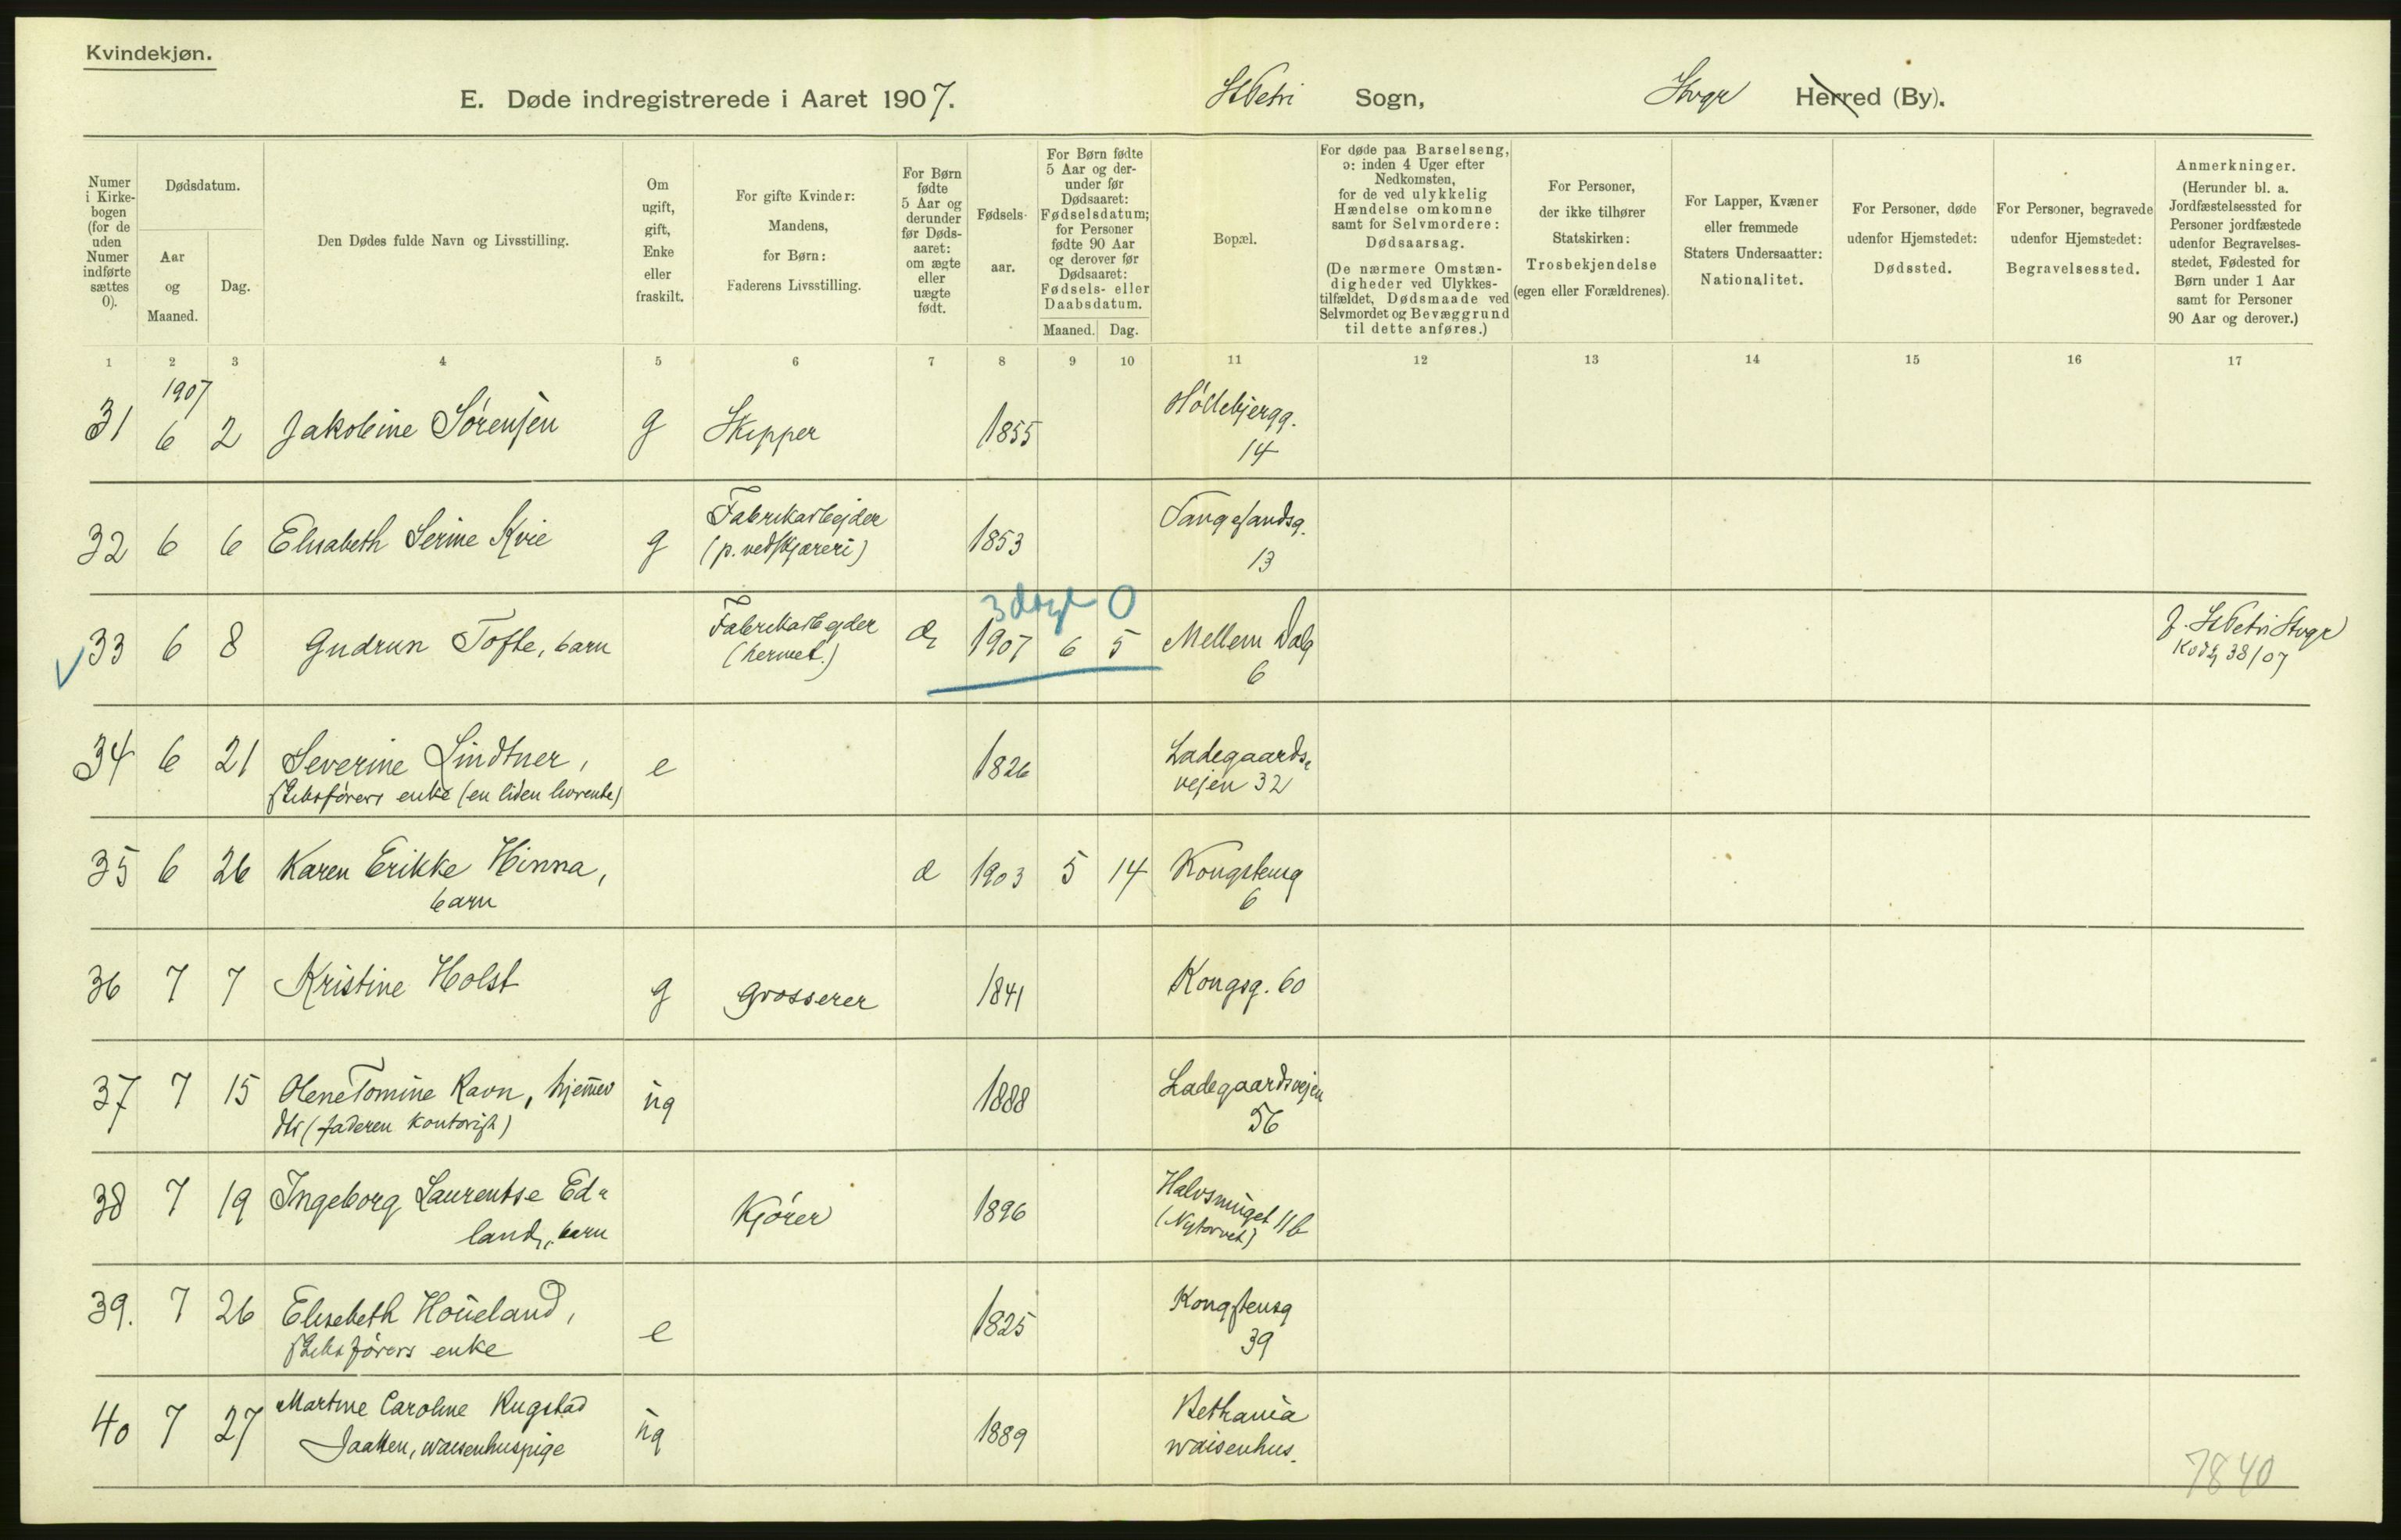 Kvindekjøn.
E. Døde indregistrerede i Aaret 1907. St Petri Sogn, Stvgr Herred (By).
Numer i Kirkebogen (for de uden Numer indførte sættes 0).
Dødsdatum.
Aar og Maaned.
Dag.
Den Dødes fulde Navn og Livsstilling.
Om ugift, gift, Enke eller fraskilt.
For gifte Kvinder: Mandens, for Børn: Faderens Livsstilling.
For Børn fødte 5 Aar og derunder før Dødsaaret: om ægte eller uægte født.
Fødselsaar.
For Børn fødte 5 Aar og derunder før Dødsaaret: Fødselsdatum; for Personer fødte 90 Aar og derover før Dødsaaret: Fødsels- eller Daabsdatum.
Maaned. Dag.
Bopæl.
For døde paa Barselseng, ɔ: inden 4 Uger efter Nedkomsten, for de ved ulykkelig Hændelse omkomne samt for Selvmordere: Dødsaarsag.
(De nærmere Omstændigheder ved Ulykkestilfældet, Dødsmaade ved Selvmordet og Bevæggrund til dette anføres.)
For Personer, der ikke tilhører Statskirken: Trosbekjendelse (egen eller Forældrenes).
For Lapper, Kvæner eller fremmede Staters Undersaatter: Nationalitet.
For Personer, døde udenfor Hjemstedet: Dødssted.
For Personer, begravede udenfor Hjemstedet: Begravelsessted.
Anmerkninger.
(Herunder bl. a. Jordfæstelsessted for Personer jordfæstede udenfor Begravelsesstedet, Fødested for Børn under 1 Aar samt for Personer 90 Aar og derover.)
1 2 3 4 5 6 7 8 9 10 11 12 13 14 15 16 17
1907
31 6 2 Jakobine Sørensen g Skipper 1855 Høllebjergg.
14
32 6 6 Elisabeth Serine Kvie g Fabrikarbejder 1853 Tangesandsg.
(p. vedskjæreri) 13
3 dage 0
33 6 8 Gudrun Tofte, barn Fabrikarbejder 1907 6 5 Mellem Dalg J. St Petri Stvgr
(hermet.) 6 38/07
34 6 21 Severine Lindtner, e 1826 Ladegaards-
skibsførers enke (en liden livrente) vejen 32
35 6 26 Karen Erikke Hinna, d 1903 5 14 Kongstensg
barn 6
36 7 7 Kristine Holst g Grosserer 1841 Kongsg. 60
37 7 15 Olene Tomine Ravn, hjemmev ug 1888 Ladegaardsvejen
dtr (faderen kontorist) 56
38 7 19 Ingeborg Laurentse Ed- Kjører 1896 Halvsmuget 11b
land, barn (Nytorvet)
39. 7 26 Elisebeth Houeland, e 1825 Kongstensg
skibsførers enke 39
40 7 27 Martine Caroline Rugstad ug 1889 Bethania
Jaatten, waisenhuspige waisenhus.
7840